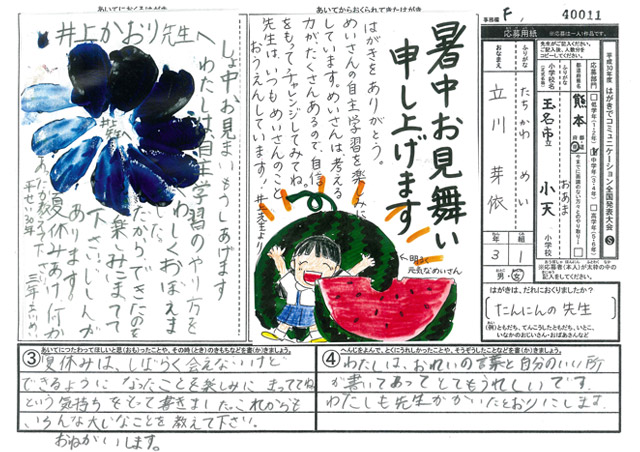 あいてにおくるはがき
井上かおり先生へ
しょ中お見まいもうしあげます
わたしは、自主学習のやり方を
くわしくおぼえま
楽しみにまって
下さい。
夏休みあけ何か
あいてからおくられてきたはがき
暑中お見舞い
申し上げます
はがきをありがとう。
めいさんの自主学習を楽しみに
しています。めいさんは考える
力がたくさんあるので、自信
をもってチャレンジしてみてね。
先生は、いつもめいさんのこと
おうえんしています。
井上先生より
明るく
元気なめいさん
事務欄
F
40011
応募用紙
※応募は一人1作品です。
平成30年度 はがきでコミュニケーション全国発表大会
応募部門
低学年(1・2年)
中学年(3・4年)
高学年(5・6年)
都道府県名
熊本
ふりがな
小学校名
玉名市立
おあま
小天
小学校
おなまえ
ふりがな
たちかわ めい
立川 芽依
3年
1組
男・女
※応募者(本人)が太枠の中の
記入をしてください。
はがきは、だれにおくりましたか?
たんにんの先生
(例)ともだち、てんこうしたともだち、いとこ、
いなかのおじいさん・おばあさんなど
③ あいてにつたわってほしいと思(おも)ったことや、その時(とき)のきもちなどを書(か)きましょう。
夏休みは、しばらく会えないけど
できるようになったことを楽しみにまっててね
という気持ちをもって書きました。これからも
いろんな大じなことを教えて下さい。
おねがいします。
④ へんじをよんで、とくにうれしかったことや、そうぞうしたことなどを書(か)きましょう。
わたしは、おれいの言葉と自分のいい所
が書いてあってとてもうれしいです。
わたしも先生がかいたとおりにします。